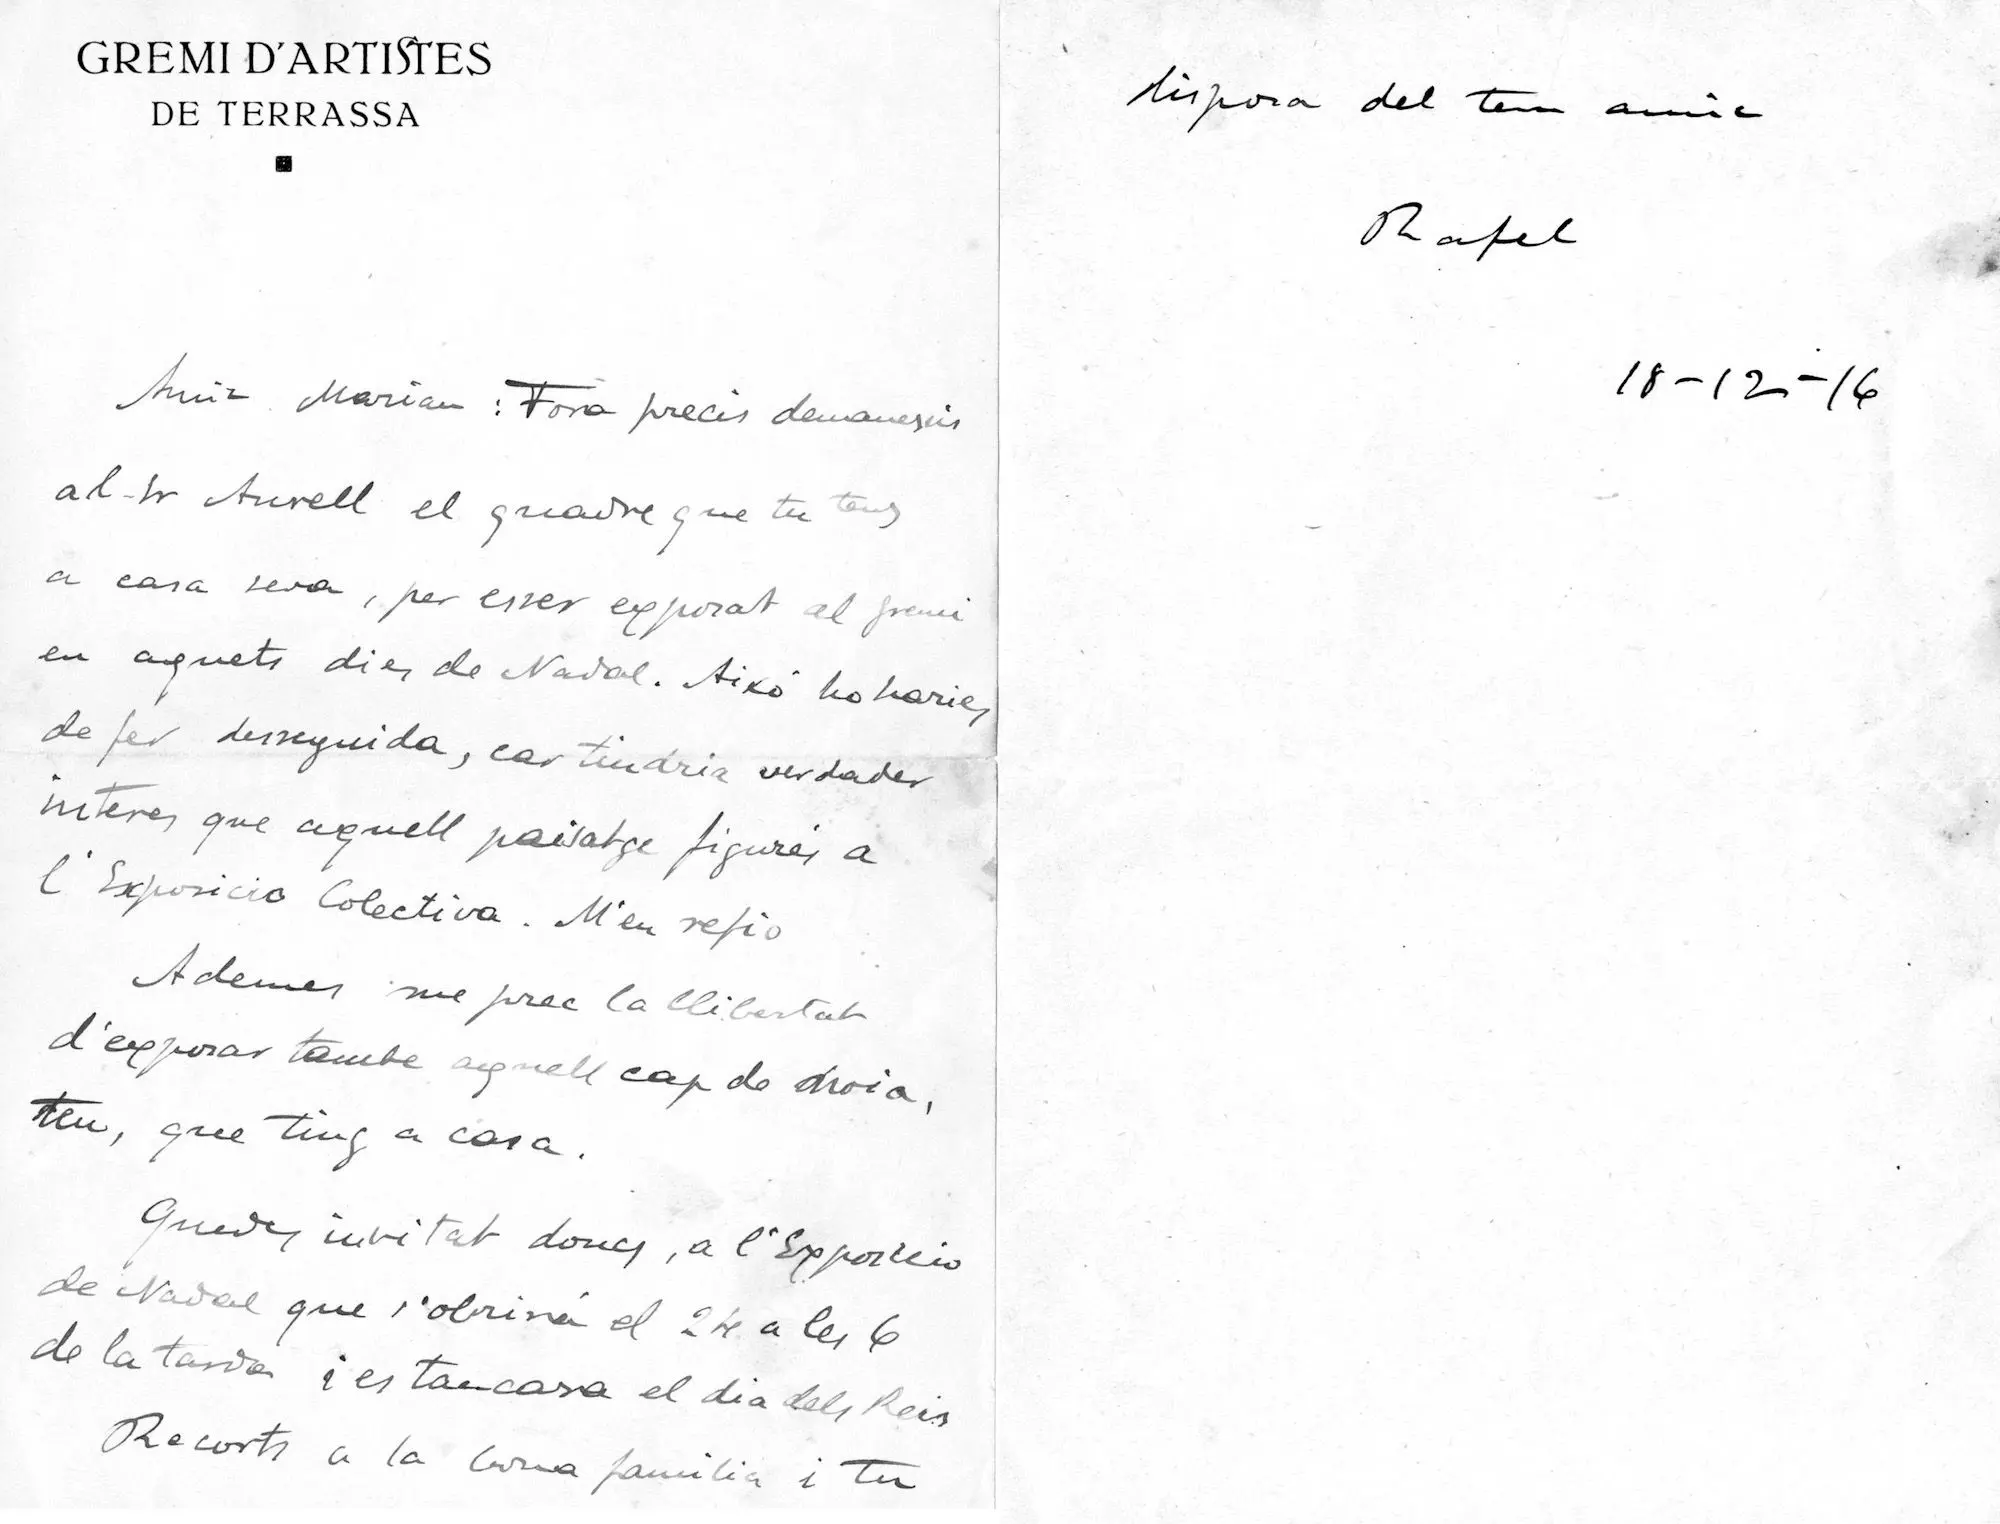 GREMI D'ARTISTES
DE TERRASSA
Amic Marian : Fora precis demanessis
al Sr Aurell el quadre que tu tens
a casa seva, per esser exposat al gremi
en aquets dies de Nadal. Aixó ho hauries
de fer desseguida, car tindria verdader
interes que aquell paisatge figurés a
l'Exposicio Colectiva. M'en refio
Ademes me prec la llibertat
d'exposar tambe aquell cap de noia,
teu, que ting a casa.
Quedes invitat doncs, a l'Exposicio
de Nadal que s'obrirá el 24 a les 6
de la tarda i es tancara el dia dels Reis
Recorts a la bona familia i tu
disposa del teu amic
Rafel
18-12-16